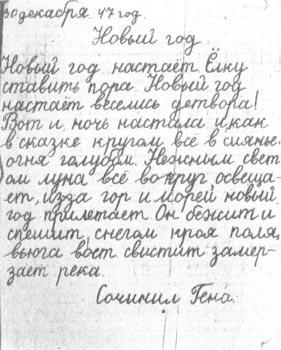 30 декабря 47 год.
Новый год
Новый год настаёт Ёлку
ставить пора. Новый год
настаёт веселись детвора!
Вот и ночь настала и, как
в сказке кругом всё в сиянье
огня голубом. Нежным свет
ом луна всё вокруг освеща-
ет, из за гор и морей новый
год прилетает. Он бежит и
спешит, снегом кроя поля,
вьюга воет свистит замер-
зает река.
Сочинил Гена.